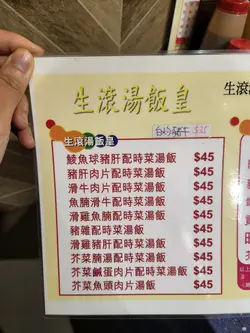 生滾湯飯皇
生滾
$25
生滾湯飯皇
鯪魚球豬肝配時菜湯飯 $45
豬肝肉片配時菜湯飯 $45
滑牛肉片配時菜湯飯 $45
魚腩滑牛配時菜湯飯 $45
滑雞魚腩配時菜湯飯 $45
豬雜配時菜湯飯 $45
滑雞豬肝配時菜湯飯 $45
芥菜腩湯配時菜湯飯 $45
芥菜鹹蛋肉片配時菜湯飯 $45
芥菜魚頭肉片湯飯 $45